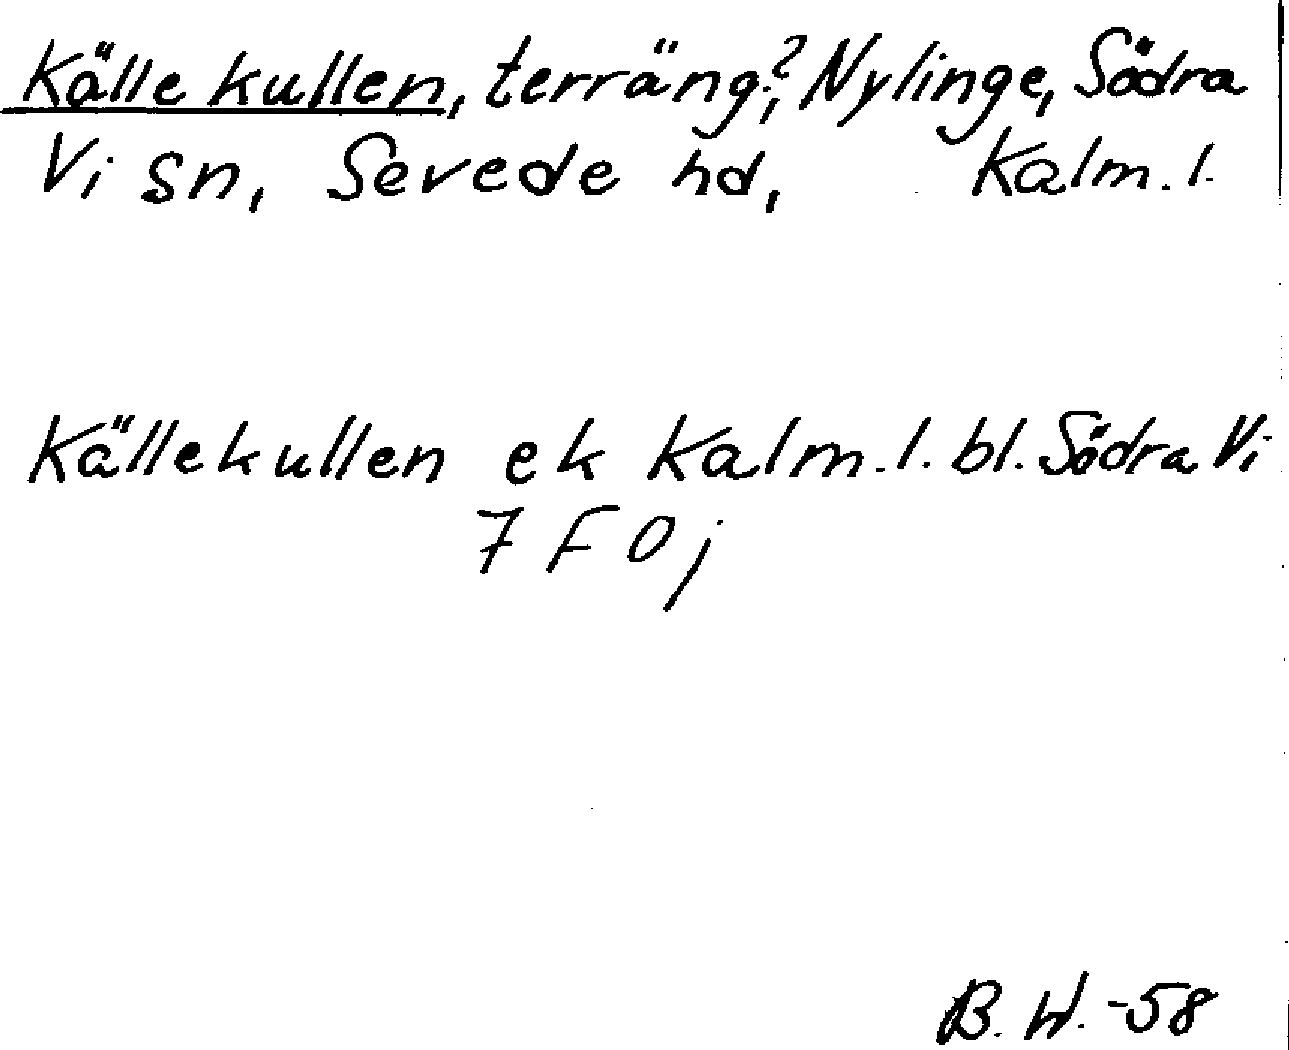 Källekullen, terräng?, Nylinge, Södra
Vi sn, Sevede hd, Kalm. l.
Källekullen ek Kalm. l. bl. Södra Vi
7 F 0 j
B. W. -58